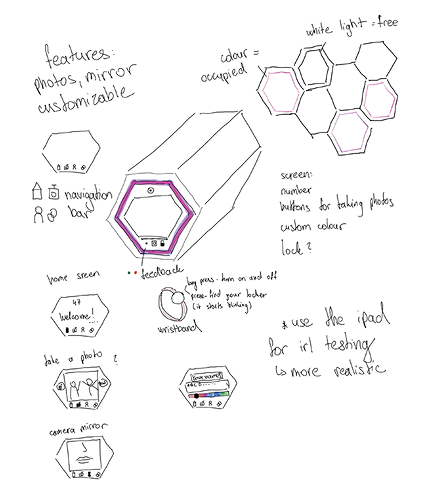 features:
photos, mirror
customizable
white light = free
colour =
occupied
navigation
bar
screen:
number
buttons for taking photos
custom colour
lock?
feedback
home sreen
47
Welcome!
long press - turn on and off
press - find your locker
(it starts blinking)
wristband
take a photo ?
camera mirror
* use the ipad
for irl testing
↳ more realistic